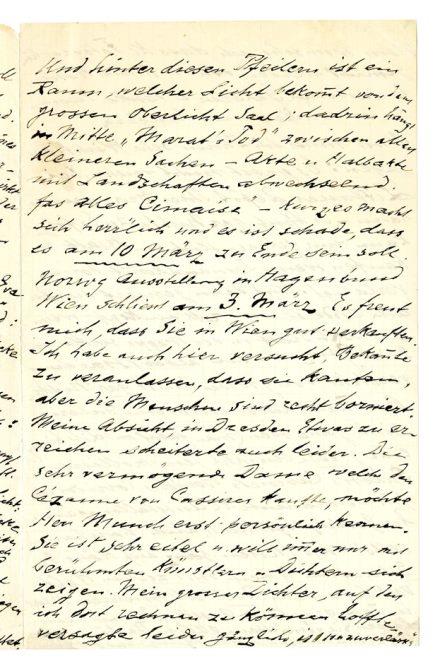 Und hinter diesen Pfeilern ist ein
Raum, welcher Licht bekomt von dem
grossen Oberlicht Saal; dadrin hängt
in Mitte „Marat's Tod" zwischen allen
kleineren Sachen – Akte u Halbakte
mit Landschaften abwechselnd.
fas alles Cimaise" – kurz es macht
sich herrlich und es ist schade, dass
es am 10 März zu Ende sein soll.
Norwg Ausstellung in Hagenbund
Wien schliest am 3. März Es freut
mich, dass Sie in Wien gut verkauften.
Ich habe auch hier versucht, Bekante
zu veranlassen, dass sie kauften,
aber die Menschen sind recht borniert.
Meine Absicht, in Dresden Etwas zu er-
reichen scheiterte auch leider. Die
sehr vermögende Dame welch den
Cézanne von Cassirer kaufte, möchte
Hern Munch erst persönlich kennen.
Sie ist sehr eitel u will imer nur mit
berühmten Künstlern u Dichtern sich
zeigen. Mein grosser Dichter, auf den
ich dort rechnen zu können hoffte
versagte leider gänzlich, ist unzuverlässig